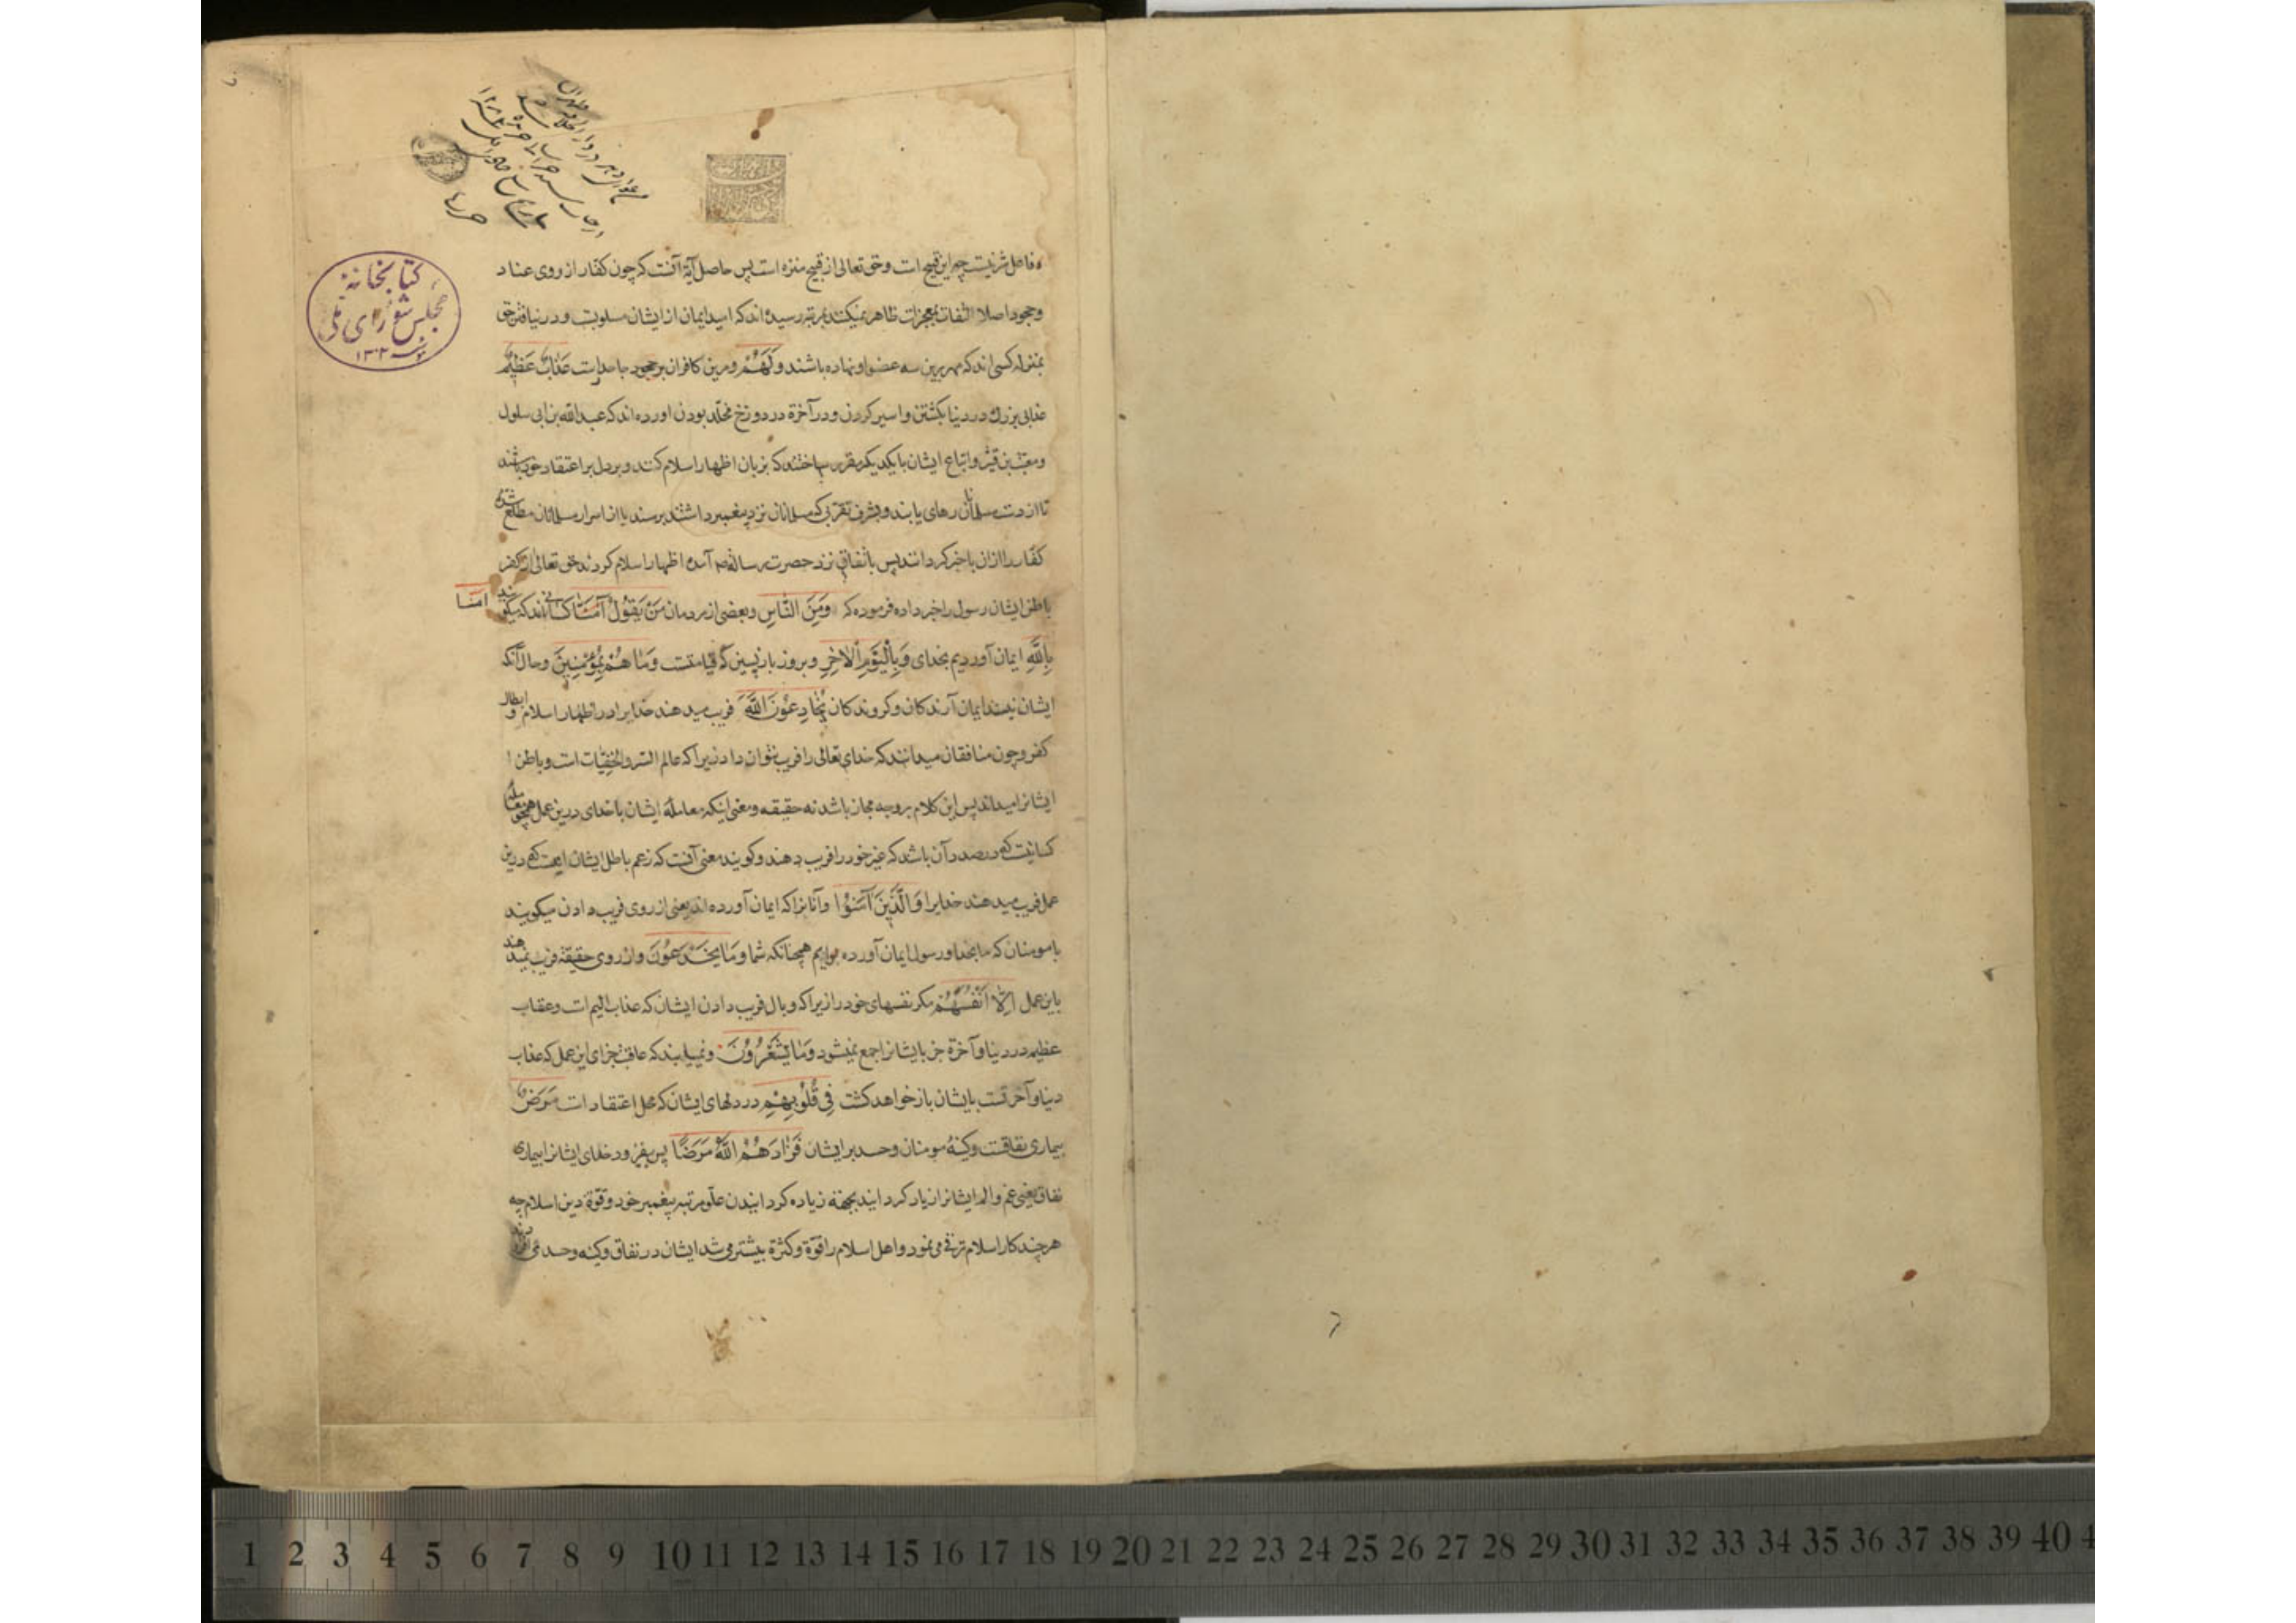 کتابخانهٔ
مجلس شورای ملی
۱۳۰۲
فاصل شر نیست چه این قبیح است و حق تعالی از قبیح منزه است پس حاصل آیه آنست که چون کفار از روی عناد
و جحود اصلا التفات بمعجزات ظاهر نمیکنند بمرتبه رسیده اند که امید ایمان از ایشان مسلوبست و در نیافتن حق
بمنزله کسی اند که مهر برین سه عضو او نهاده باشند وَلَهُمْ و مرین کافران بر جحود جاحد راست عَذَابٌ عَظِیمٌ
عذابی بزرك در دنیا بکشتن و اسیر کردن و در آخرة در دوزخ مخلّد بودن اورده اند که عبد الله بن ابی سلول
و معتب بن قشیر و اتباع ایشان با یکدیکر مقرر ساختند که بزبان اظهار اسلام کنند و بر دل بر اعتقاد خود باشند
تا از دست مسلمانان رهای یابند و بشرف تقربی که مسلمانان نزد پیغمبر داشتند برسند یا از اسرار مسلمانان مطلع شده
کفّار را ازان باخبر کردانند پس باتفاق نزد حضرت رسالة ص آمده اظهار اسلام کردند حق تعالی از کفر
باطن ایشان رسول را خبر داده فرموده که وَمِنَ النَّاسِ و بعضی از مردمان مَنْ یَقُولُ آمَنَّا کسانی اند که میکویند
امنا
بِاللَّهِ ایمان آوردیم بخدای وَبِالْیَوْمِ الْاٰخِرِ و بروز بازپسین که قیامتست وَمَا هُمْ بِمُؤْمِنِینَ و حال آنکه
ایشان نیستند ایمان آرندکان و کروندکان یُخَادِعُونَ اللَّهَ فریب میدهند خدایرا در اظهار اسلام و ابطان
کفر و چون منافقان میدانند که خدای تعالی را فریب نتوان داد زیرا که عالم السّر و الخفیّات است و باطن
ایشانرا میداند پس این کلام بر وجه مجاز باشد نه حقیقه و معنی اینکه معامله ایشان با خدای درین عمل همچو معامله
کسانیست که در صدد آن باشد که غیر خود را فریب دهند و کویند معنی آنست که زعم باطل ایشان اینست که درین
عمل فریب میدهند خدایرا وَالَّذِینَ آمَنُوا و آنانرا که ایمان آورده اند یعنی از روی فریب دادن میکویند
با مومنان که ما بخدا و رسول ایمان آورده ایم همچنانکه شما وَمَا یَخْدَعُونَ و از روی حقیقة فریب نمیدهند
باین عمل اِلَّا اَنْفُسَهُمْ مکر نفسهای خود را زیرا که وبال فریب دادن ایشان که عذاب الیم است و عقاب
عظیم در دنیا و آخرة جز بایشان راجع نمیشود وَمَا یَشْعُرُونَ و نمییابند که عاقبة جزای این عمل که عذاب
دنیا و آخرتست بایشان باز خواهد کشت فِی قُلُوبِهِمْ در دلهای ایشان که محل اعتقاد است مَرَضٌ
بیماری نفاقست و کینهٔ مومنان و حسد بر ایشان فَزَادَهُمُ اللَّهُ مَرَضًا پس بیفزود خدای ایشانرا بیماری
نفاق یعنی غم و الم ایشانرا زیاد کردانید بجهة زیاده کردانیدن علّو مرتبه پیغمبر خود و قوّة دین اسلام چه
هر چند کار اسلام ترقی می نمود و اهل اسلام را قوّة و کثرة بیشتر می شد ایشان در نفاق و کینه و حسد می
1 2 3 4 5 6 7 8 9 10 11 12 13 14 15 16 17 18 19 20 21 22 23 24 25 26 27 28 29 30 31 32 33 34 35 36 37 38 39 40 4